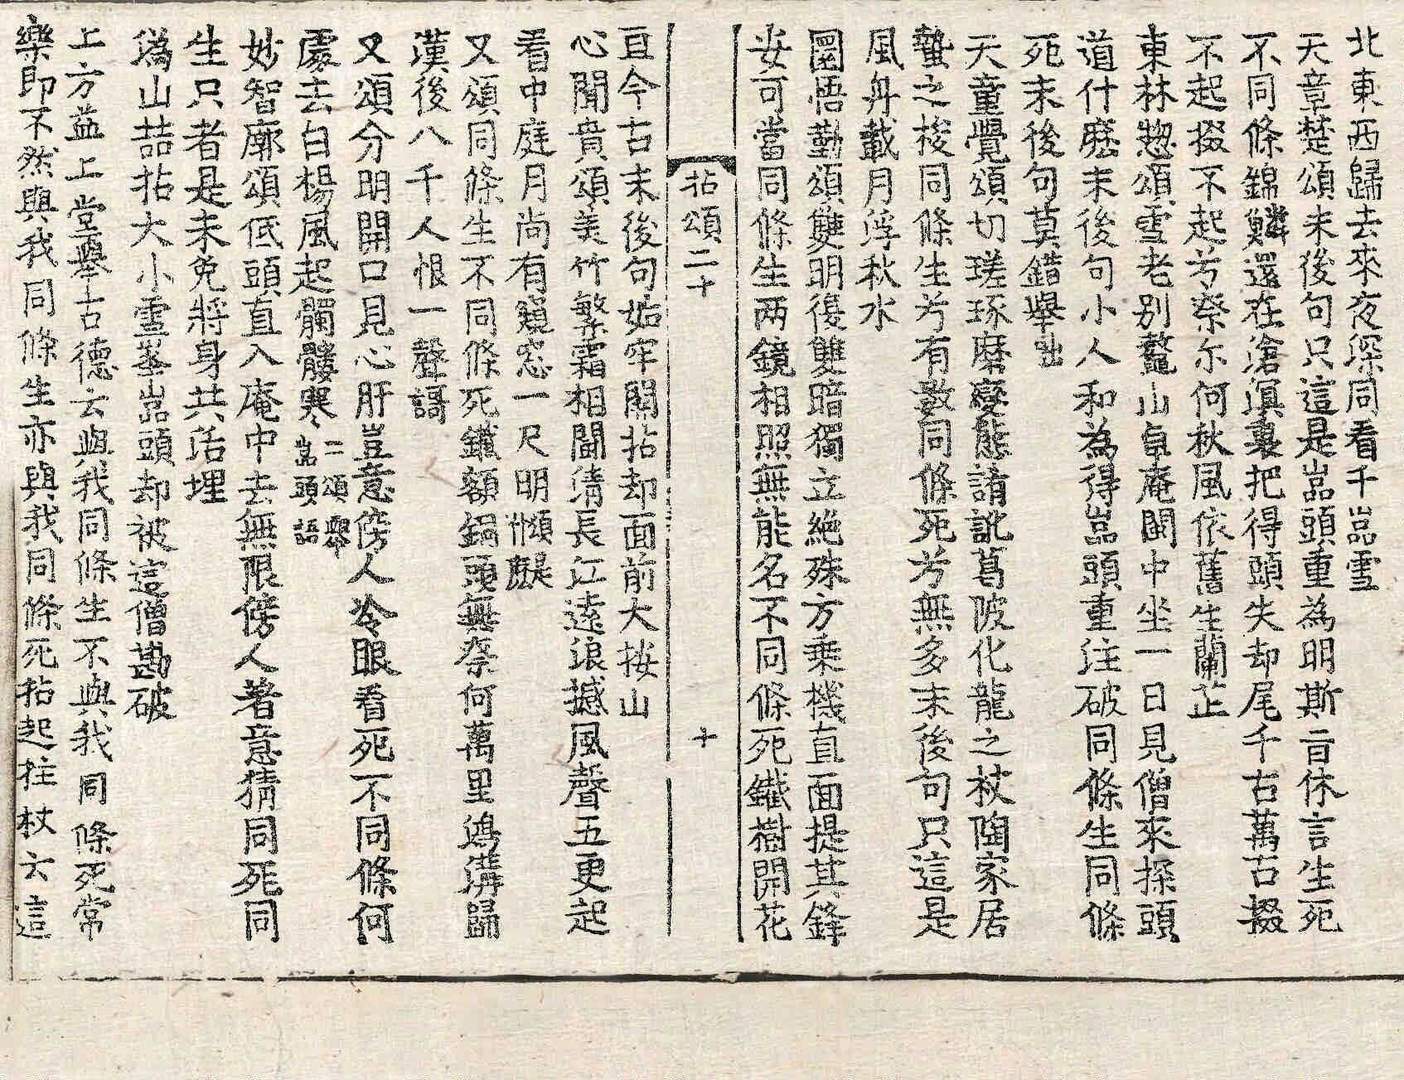 北東西歸去來夜深同看千嵓雪
天章楚頌末後句只這是嵓頭重為明斯旨休言生死
不同條錦鱗還在滄溟裏把得頭失却尾千古萬古掇
不起掇不起兮祭尒何秋風依舊生蘭芷
東林惣頌雪老別鼇山卓庵閩中坐一日見僧來探頭
道什麽末後句小人和為得嵓頭重注破同條生同條
死末後句莫錯擧咄
天童覺頌切瑳琢磨變態誵訛葛陂化龍之杖陶家居
蟄之梭同條生兮有數同條死兮無多末後句只這是
風舟載月浮秋水
圜悟勤頌雙明復雙暗獨立絶殊方乗機直面提其鋒
安可當同條生兩鏡相照無能名不同條死鐵樹開花
拈頌二十 十
亘今古末後句始牢關拈却面前大桉山
心聞賁頌美竹繁霜相鬪清長江遠浪撼風聲五更起
看中庭月尚有窺窓一尺明此頌是什麽
又頌同條生不同條死鐵額銅頭無柰何萬里鴻溝歸
漢後八千人恨一聲謌
又頌分明開口見心肝豈意傍人冷眼看死不同條何
處去白楊風起髑髏寒二頌擧嵓頭語
妙智廓頌低頭直入庵中去無限傍人著意猜同死同
生只者是未免將身共活埋
溈山喆拈大小雪峯嵓頭却被這僧勘破
上方益上堂擧古德云與我同條生不與我同條死常
樂即不然與我同條生亦與我同條死拈起拄杖云這